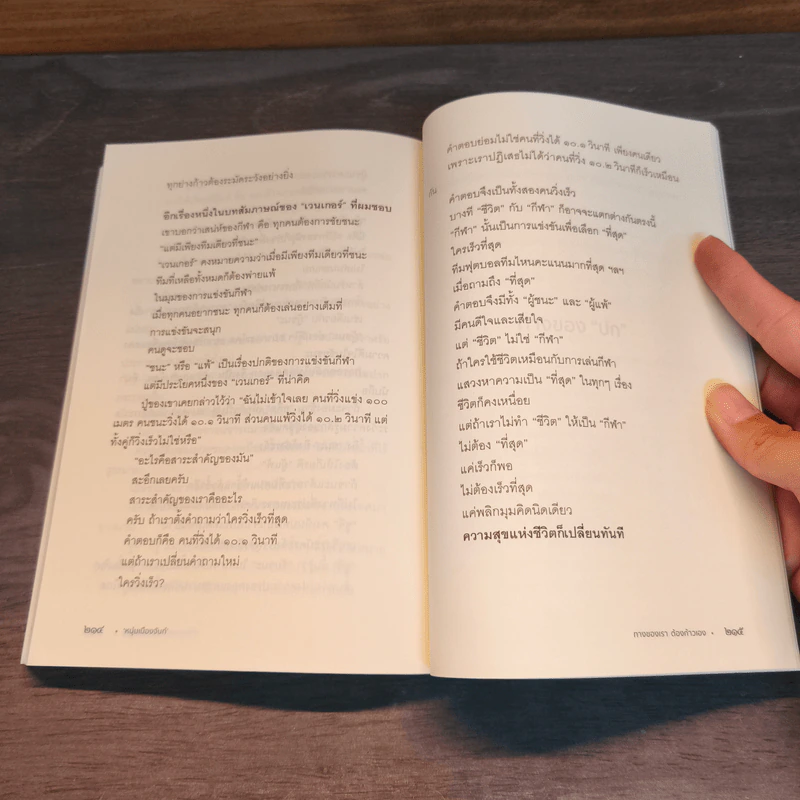 ทุกย่างก้าวต้องระมัดระวังอย่างยิ่ง
อีกเรื่องหนึ่งในบทสัมภาษณ์ของ "เวนเกอร์" ที่ผมชอบ
เขาบอกว่าเสน่ห์ของกีฬา คือ ทุกคนต้องการชัยชนะ
"แต่มีเพียงทีมเดียวที่ชนะ"
"เวนเกอร์" คงหมายความว่าเมื่อมีเพียงทีมเดียวที่ชนะ
ทีมที่เหลือทั้งหมดก็ต้องพ่ายแพ้
ในมุมของการแข่งขันกีฬา
เมื่อทุกคนอยากชนะ ทุกคนก็ต้องเล่นอย่างเต็มที่
การแข่งขันจะสนุก
คนดูจะชอบ
"ชนะ" หรือ "แพ้" เป็นเรื่องปกติของการแข่งขันกีฬา
แต่มีประโยคหนึ่งของ "เวนเกอร์" ที่น่าคิด
ปู่ของเขาเคยกล่าวไว้ว่า "ฉันไม่เข้าใจเลย คนที่วิ่งแข่ง ๑๐๐
เมตร คนชนะวิ่งได้ ๑๐.๑ วินาที ส่วนคนแพ้วิ่งได้ ๑๐.๒ วินาที แต่
ทั้งคู่ก็วิ่งเร็วไม่ใช่หรือ"
"อะไรคือสาระสำคัญของมัน"
สะอึกเลยครับ
สาระสำคัญของเราคืออะไร
ครับ ถ้าเราตั้งคำถามว่าใครวิ่งเร็วที่สุด
คำตอบก็คือ คนที่วิ่งได้ ๑๐.๑ วินาที
แต่ถ้าเราเปลี่ยนคำถามใหม่
"ใครวิ่งเร็ว?
๒๑๔ • หนุ่มเมืองจันท์
คำตอบย่อมไม่ใช่คนที่วิ่งได้ ๑๐.๑ วินาที เพียงคนเดียว
เพราะเราปฏิเสธไม่ได้ว่าคนที่วิ่ง ๑๐.๒ วินาทีก็เร็วเหมือน
กัน
คำตอบจึงเป็นทั้งสองคนวิ่งเร็ว
บางที "ชีวิต" กับ "กีฬา" ก็อาจจะแตกต่างกันตรงนี้
"กีฬา" นั้นเป็นการแข่งขันเพื่อเลือก "ที่สุด"
ใครเร็วที่สุด
ทีมฟุตบอลทีมไหนคะแนนมากที่สุด ฯลฯ
เมื่อถามถึง "ที่สุด"
คำตอบจึงมีทั้ง "ผู้ชนะ" และ "ผู้แพ้"
มีคนดีใจและเสียใจ
แต่ "ชีวิต" ไม่ใช่ "กีฬา"
ถ้าใครใช้ชีวิตเหมือนกับการเล่นกีฬา
แสวงหาความเป็น "ที่สุด" ในทุกๆ เรื่อง
ชีวิตก็คงเหนื่อย
แต่ถ้าเราไม่ทำ "ชีวิต" ให้เป็น "กีฬา"
ไม่ต้อง "ที่สุด"
แค่เร็วก็พอ
ไม่ต้องเร็วที่สุด
แค่พลิกมุมคิดนิดเดียว
ความสุขแห่งชีวิตก็เปลี่ยนทันที
ทางของเรา ต้องก้าวเอง • ๒๑๕